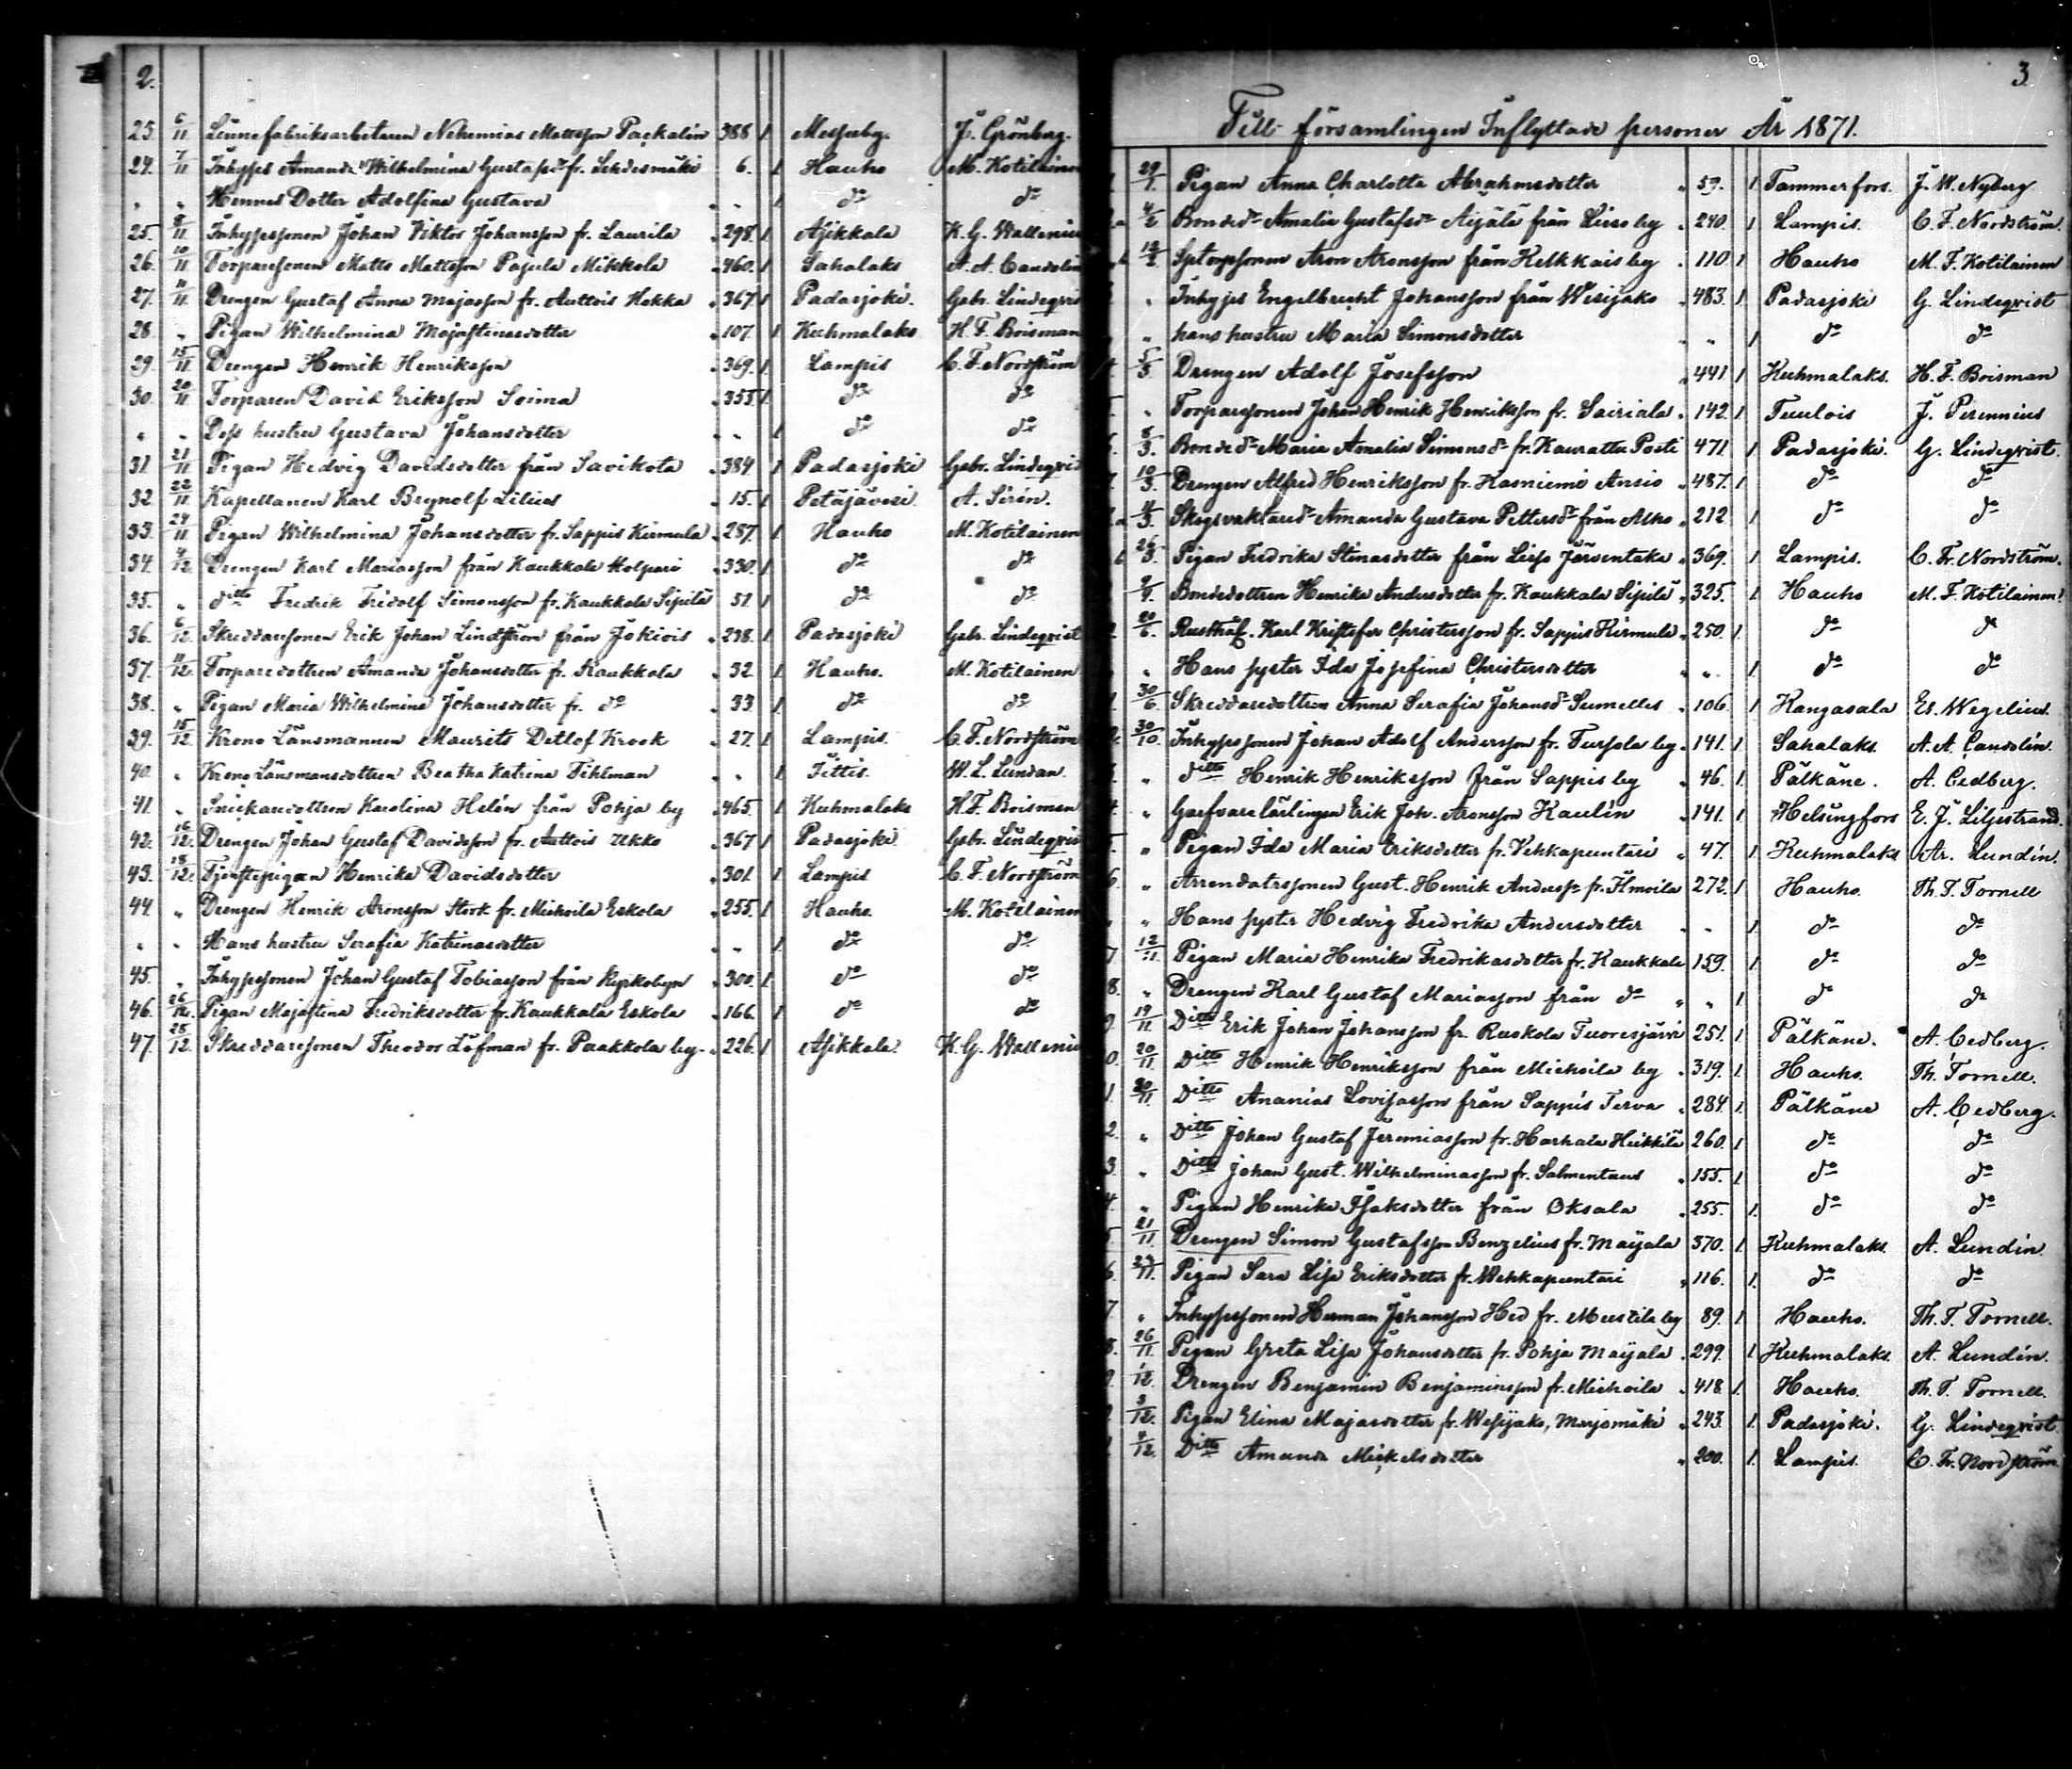 2.
25. 6/11 Linnefabriksarbetaren Nehemias Mattsson Packalén 388 1 Messuby. J. Grönberg.
24. 7/11 Inhyses Amanda Wilhelmina Gustafsdr fr. Lehdesmäki 6. 1 Hauho M. Kotilainen
" " Hennes Dotter Adolfina Gustava " " 1 do do
25. 8/11 Inhysessonen Johan Viktor Johansson fr. Laurila 298. 1. Asikkala K. G. Wallenius
26. 10/11 Torparesonen Matts Mattsson Pajula Mikkola 460. 1. Sahalaks A. A. Candolin
27. 11/11 Drengen Gustaf Anna Majasson fr. Auttois Hokka 367 1 Padasjoki. Gabr. Lindeqvis
28. " Pigan Wilhelmina Majastinasdotter 107. 1 Kuhmalaks H. F. Boisman
29. 15/11 Drengen Henrik Henriksson 369. 1. Lampis C. F. Nordström
30. 20/11 Torparen David Eriksson Soima 355. 1. do do
" " Dess hustru Gustava Johansdotter " " 1 do do
31. 21/11 Pigan Hedvig Davidsdotter från Savikota 384 1 Padasjoki Gabr. Lindeqvi
32. 22/11 Kapellanen Karl Brynolf Lilius 15. 1 Petäjävesi. A. Sirén.
33. 24/11 Pigan Wilhelmina Johansdotter fr. Sappis Kirmula 287. 1 Hauho M. Kotilainen
34. 4/12 Drengen Karl Mariasson från Kaukkala Holpari 330. 1. do do
35. " ditto Fredrik Fridolf Simonsson fr. Kaukkala Sipilä 51. 1 do do
36. 6/12 Skreddaresonen Erik Johan Lindström från Jokiois 238. 1. Padasjoki Gabr. Lindeqvist
37. 11/12 Torparedottren Amanda Johansdotter fr. Kaukkala 32 1 Hauho. M. Kotilainen
38. " Pigan Maria Wilhelmina Johansdotter fr. do 33 1 do do
39. 15/12. Krono Länsmannen Maurits Detlof Krook 27. 1 Lampis. C. F. Nordström
40. " Krono Länsmansdottren Beatha Katrina Tihlman " " 1 Tittis. W. L. Lundan.
41. " Snickaredottren Karolina Helén från Pohja by 465. 1 Kuhmalaks H. F. Boisman
42. 16/12. Drengen Johan Gustaf Davidsson fr. Auttois Ukko 367 1 Padasjoki. Gabr. Lindeqvis
43. 18/12. Tjenstepigan Henrika Davidsdotter 301. 1 Lampis C. F. Nordström
44. " Drengen Henrik Aronsson Stork fr. Miehoila Eskola 255. 1. Hauho. M. Kotilainen
" " Hans hustru Serafia Katrinasdotter " " 1 do do
45. " Inhysessonen Johan Gustaf Tobiasson från Kyrkobyn 300. 1. do do
46. 26/12. Pigan Majastina Fredriksdotter fr. Kaukkala Eskola 166. 1 do do
47. 28/12. Skreddaresonen Theodor Löfman fr. Paakkola by. 226. 1 Asikkala. K. G. Wallenius
3.
Till församlingen Inflyttade personer År 1871.
29/1. Pigan Anna Charlotta Abrahmsdotter 59. 1. Tammerfors. J. W. Nyberg
4/2 Bondedr Amalia Gustafsdr Äijälä från Lieso by 240. 1 Lampis. C. F. Nordström.
Aron Aronsson från Kelkkais by 110. 1 Hauho M. F. Kotilainen
" Inhyses Engelbrecht Johansson från Wesijako 483. 1. Padasjoki G. Lindeqvist
" hans hustru Maria Simonsdotter " " 1 do do
5/3. Drengen Adolf Josefsson 441 1 Kuhmalaks. H. F. Boisman
" Torparesonen Johan Henrik Henriksson fr. Sairiala 142. 1 Tuulois J. Perennius
8/3. Bondedr Maria Amalia Simonsdr fr. Kaurattu Posti 471 1 Padasjoki. G. Lindeqvist.
10/3. Drengen Alfred Henriksson fr. Kasniemi Ansio 487. 1 do do
11/3. Skogsvaktaredr Amanda Gustava Pettersdr från Alho 212 1 do do
26/3. Pigan Fredrika Stinasdotter från Lieso Jersentaka 369. 1. Lampis. C. Fr. Nordström.
2/4. Bondedottren Henrika Andersdotter fr. Kaukkala Sipilä 325. 1 Hauho M. F. Kotilainen.
20/6. Rusthål. Karl Kristofer Christersson fr. Sappis Kirmula 250. 1. do do
" Hans syster Ida Josefina Christersdotter " " 1. do do
30/6. Skreddaredottren Anna Serafia Johansdr Sumelles 106. 1 Kangasala Es. Wegelius.
30/10. Inhysessonen Johan Adolf Andersson fr. Tursola by 141. 1. Sahalaks. A. A. Candolin.
" ditto Henrik Henriksson från Sappis by 46. 1. Pälkäne. A. Cedberg.
" Garfvarelärlingen Erik Joh. Aronsson Kaulin 141. 1 Helsingfors E. J. Liljestrand.
" Pigan Ida Maria Eriksdotter fr. Vehkapuntari 47. 1. Kuhmalaks Ar. Lundin.
6. " Arrendatorssonen Gust. Henrik Anderss. fr. Ilmoila 272. 1 Hauho. Th. T. Tornell
" Hans syster Hedvig Fredrika Andersdotter " " 1. do do
7 12/11. Pigan Maria Henrika Fredrikasdotter fr. Kaukkala 159. 1. do do
8. " Drengen Karl Gustaf Mariasson från do " " 1 do do
9. 19/11 Ditto Erik Johan Johansson fr. Ruskola Tuoresjärvi 251. 1. Pälkäne. A. Cedberg.
0. 20/11 Ditto Henrik Henriksson från Miehoila by 319. 1. Hauho. Th. Tornell.
1. 20/11. Ditto Ananias Lovisasson från Sappis Terva 284. 1. Pälkäne A. Cedberg.
2. " Ditto Johan Gustaf Jeremiasson fr. Harhala Heikkilä 260. 1 do do
3. " Ditto Johan Gust. Wilhelminasson fr. Salmentaus 155. 1. do do
4. " Pigan Henrika Isaksdotter från Oksala 255. 1. do do
5. 21/11. Drengen Simon Gustafsson Benzelius fr. Maijala 370. 1. Kuhmalaks. A. Lundin.
6. 24/11. Pigan Sara Lisa Eriksdotter fr. Wehkapuntari 116. 1. do do
7. " Inhysessonen Herman Johansson Hed fr. Mustila by 89. 1 Hauho. Th. T. Tornell.
8. 26/11. Pigan Greta Lisa Johansdotter fr. Pohja Maijala 299. 1 Kuhmalaks. A. Lundin.
9. 1/12. Drengen Benjamin Benjaminsson fr. Miehoila 418. 1. Hauho. Th. T. Tornell.
3/12. Pigan Elina Majasdotter fr. Wesijako, Marjomäki 243. 1. Padasjoki. G. Lindeqvist
4/12. Ditto Amanda Mickelsdotter 200. 1. Lampis. C. Fr. Nordström.